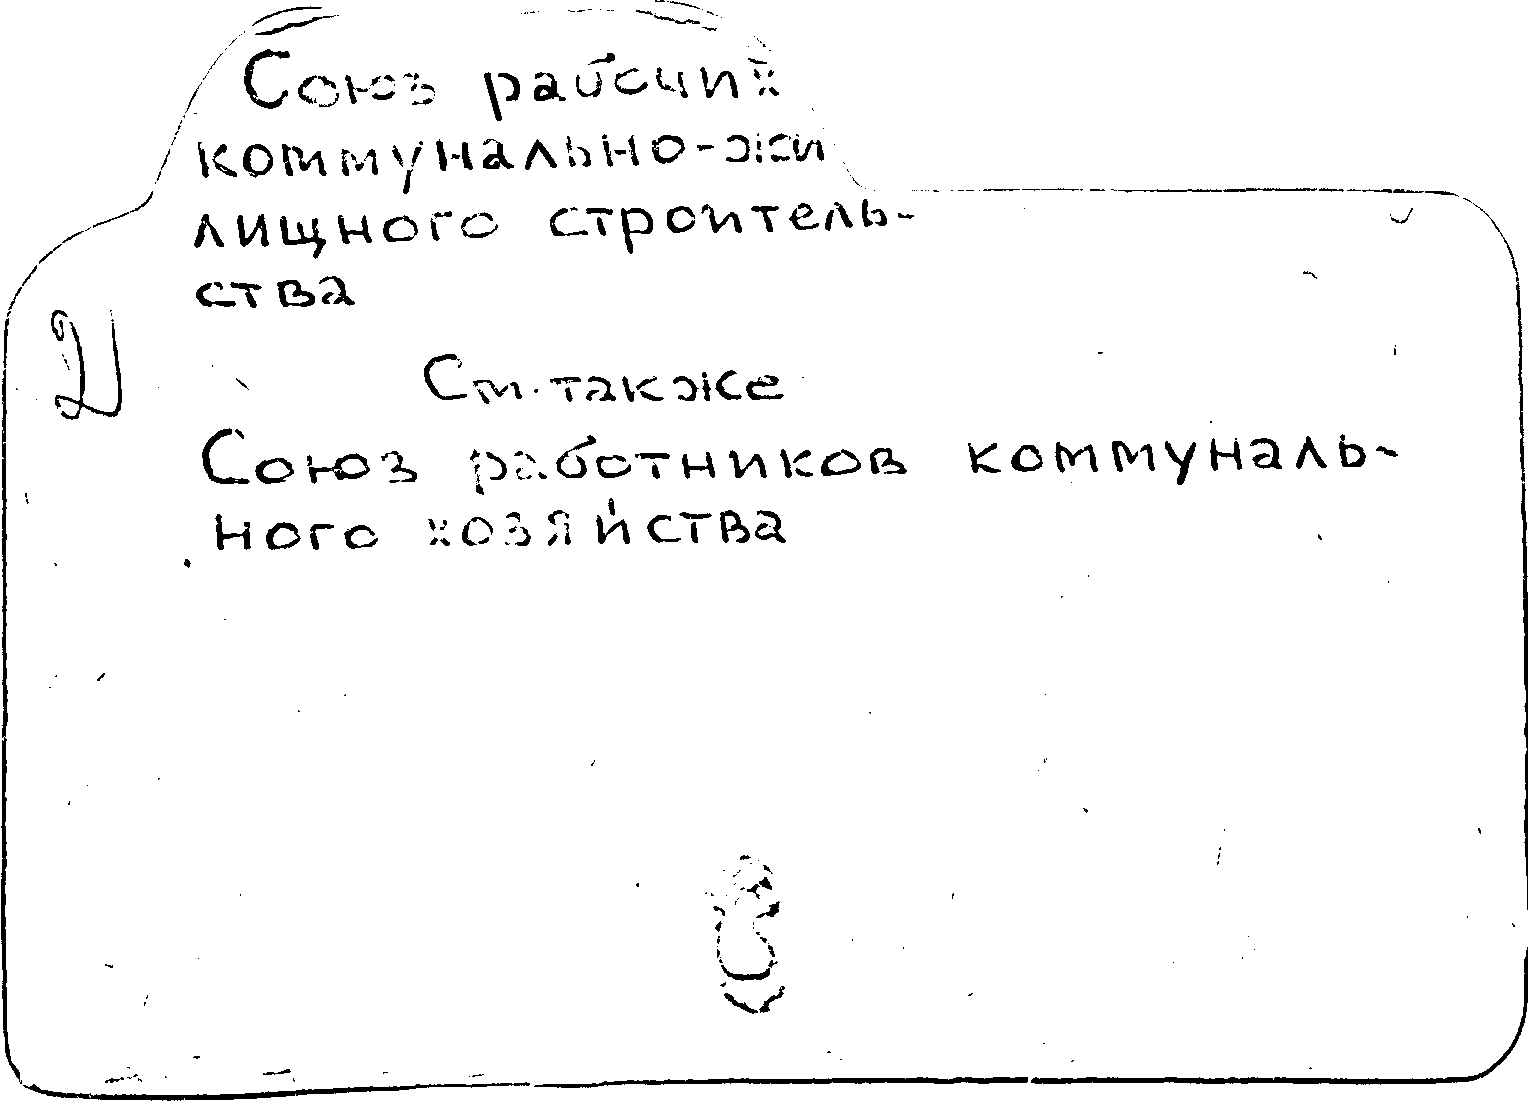 Союз рабочих
коммунально-жи
лищного строитель-
ства
См. также
Союз работников коммуналь-
ного хозяйства